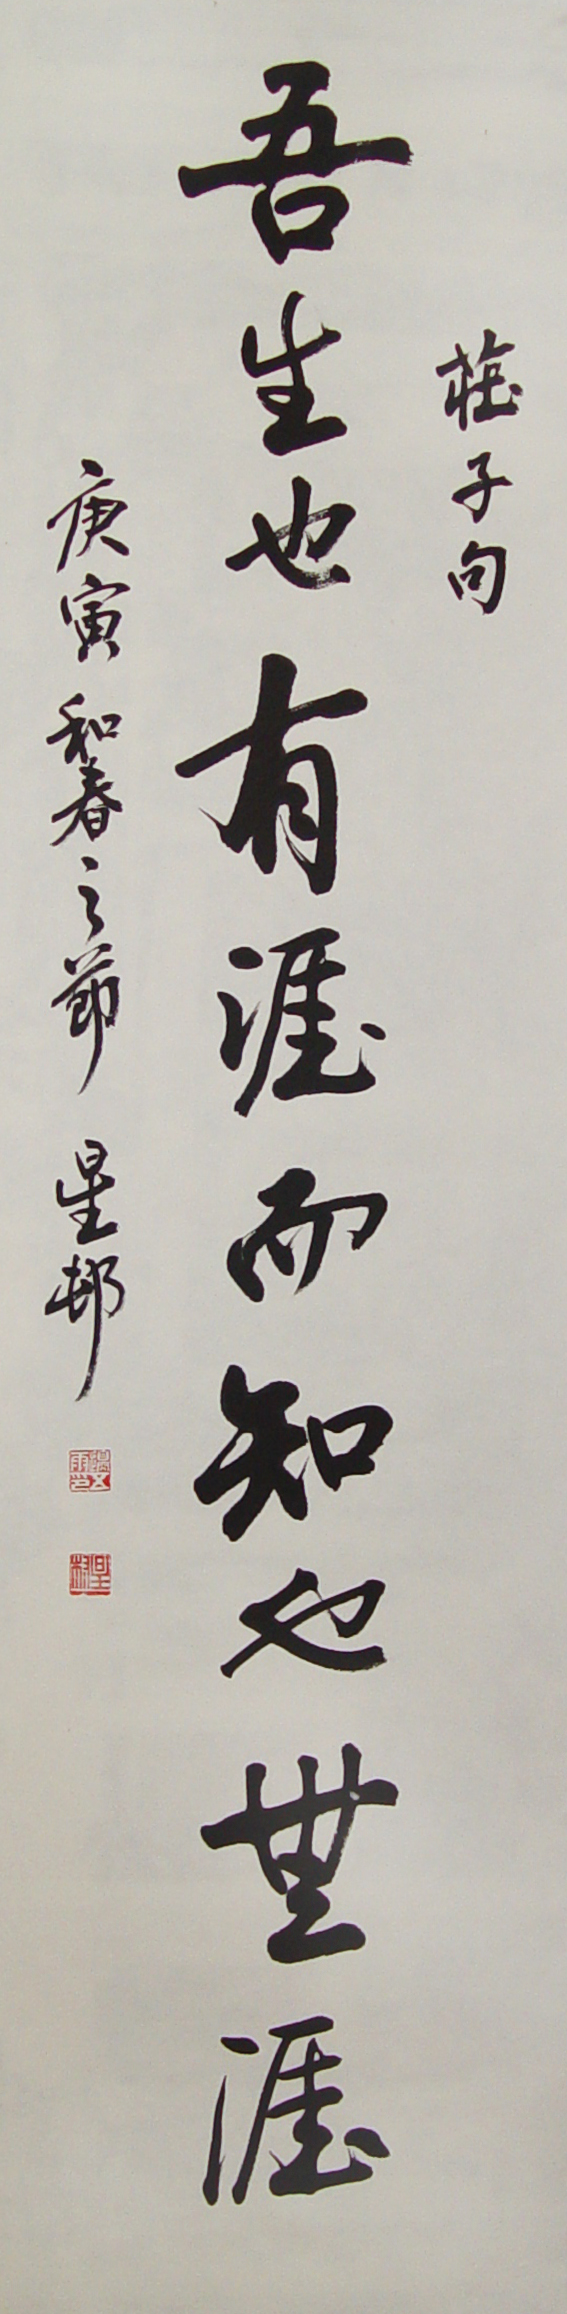 莊子句
吾生也有涯而知也無涯
庚寅和春之節 星邨